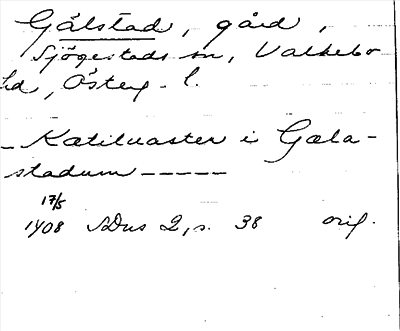 Gålstad, gård,
Sjögestads sn, Valkebo
hd, Österg. l.
– Kætiluaster i Gæla-
stadum – – – – –
17/5
1408 SDns 2, s. 38 orig.